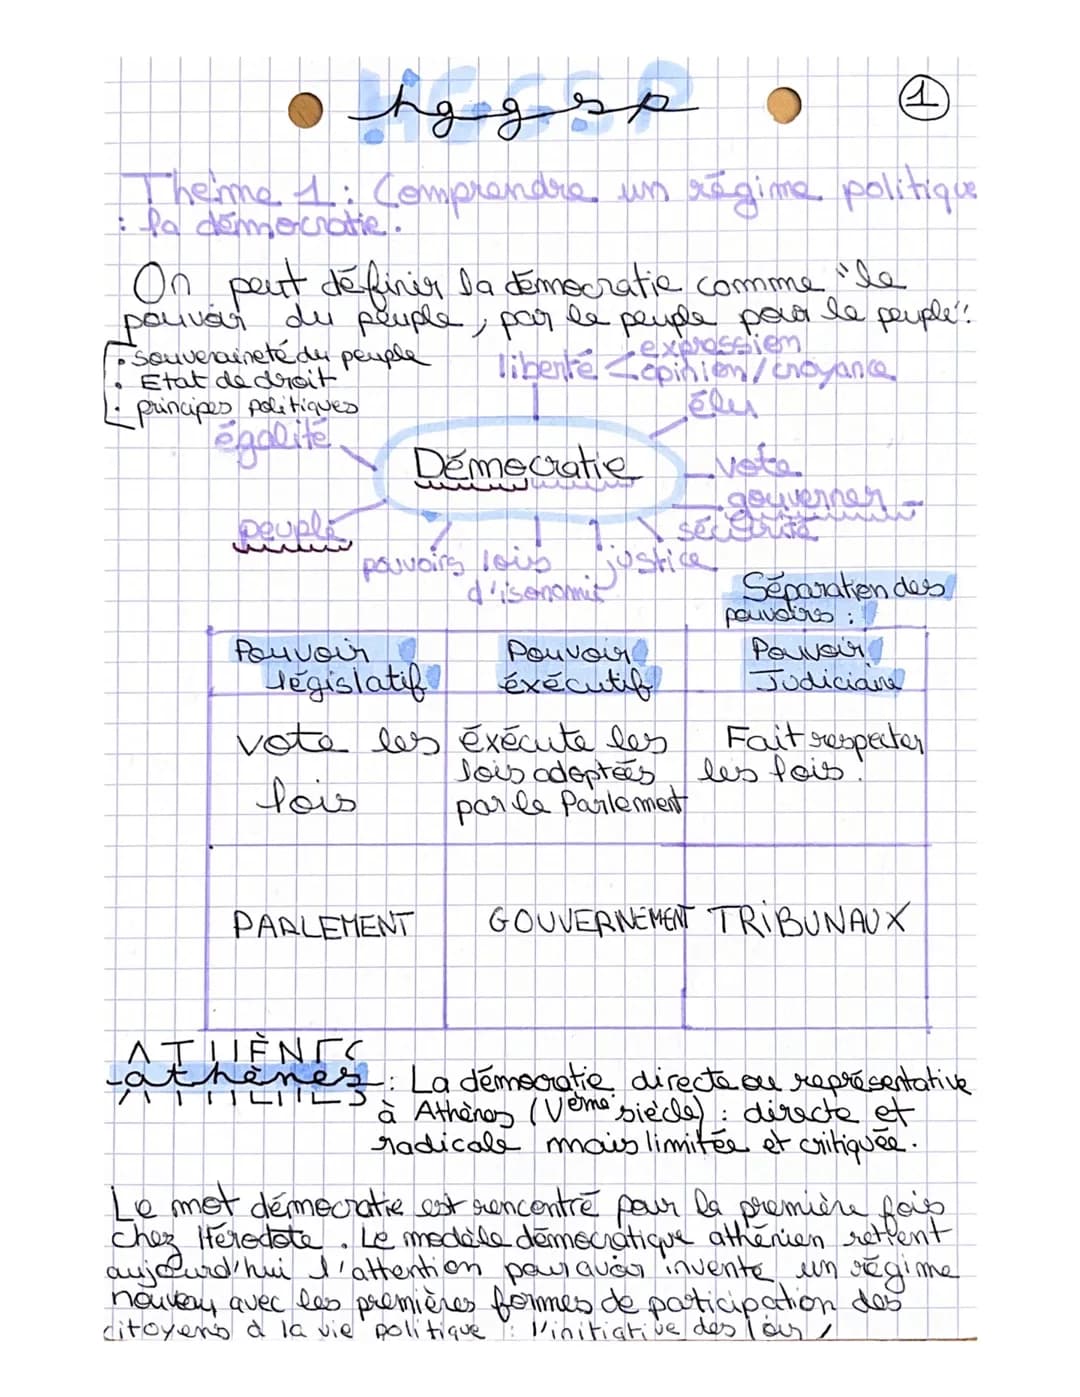 hggsp
1
Thème 1 : Comprendre un régime politique
: la démocratie.
On peut définir la démocratie comme "le
pouvoir du peuple, par le peuple pour le peuple".
• Souveraineté du peuple
• Etat de droit
• principes politiques
expression
liberté < opinion / croyance
élu
égalité
Démocratie
vote
gouverner
peuple
sécurité
pouvoirs lois justice
d'isonomie
Séparation des
pouvoirs :
Pouvoir législatif
Pouvoir éxécutif
Pouvoir Judiciaire
vote les lois
éxécute les lois adoptées par le Parlement
Fait respecter les lois.
PARLEMENT GOUVERNEMENT TRIBUNAUX
athènes : La démocratie directe ou représentative
à Athènes (Vème siècle) : directe et
radicale mais limitée et critiquée.
Le mot démocratie est rencontré pour la première fois
chez Hérodote. Le modèle démocratique athénien retient
aujourd'hui l'attention pour avoir inventé un régime
nouveau avec les premières formes de participation des
citoyens à la vie politique : l'initiative des lois,